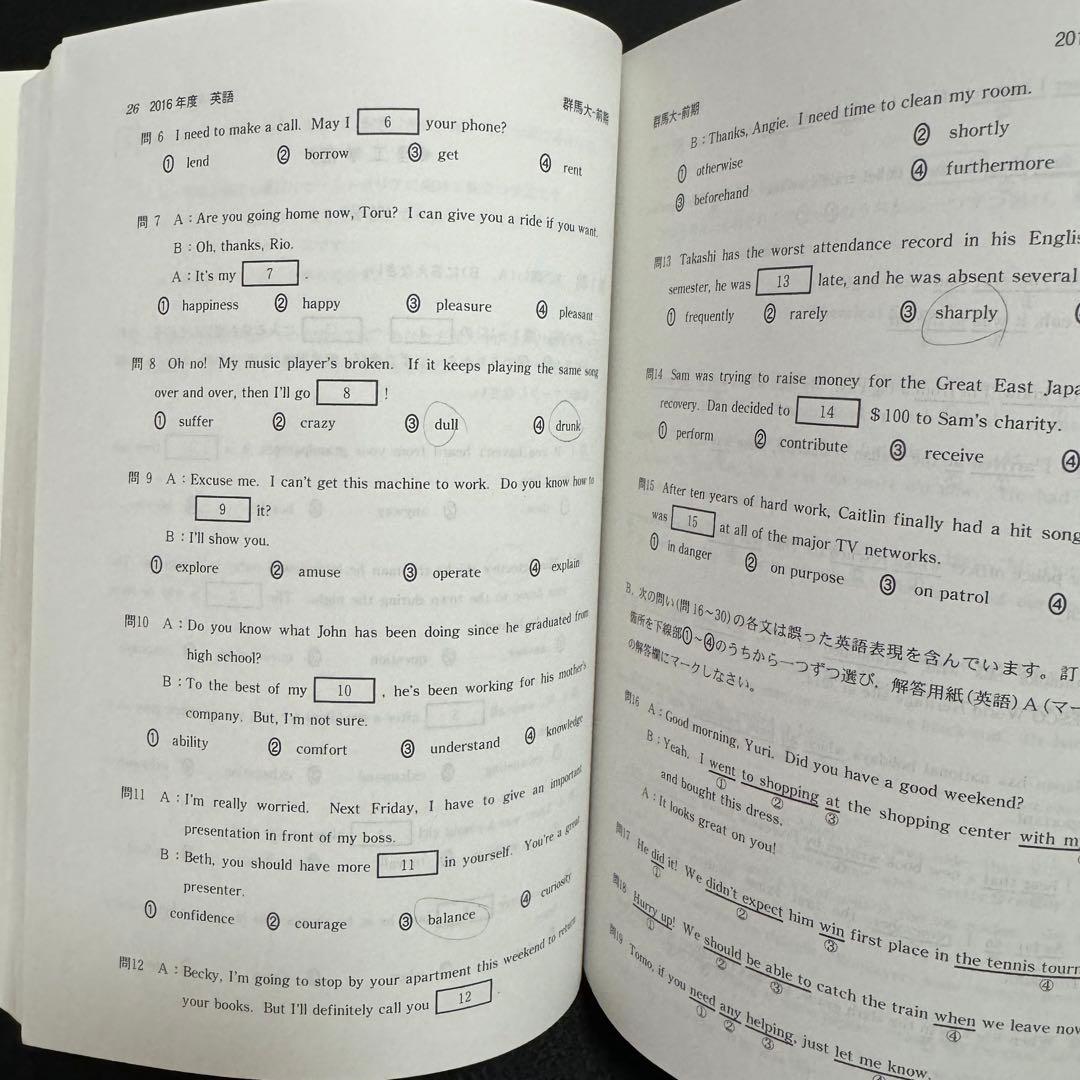 26 2016年度 英語
群馬大-前期
問 6 I need to make a call. May I 6 your phone?
① lend ② borrow ③ get ④ rent
問 7 A：Are you going home now, Toru? I can give you a ride if you want.
B：Oh, thanks, Rio.
A：It's my 7 .
① happiness ② happy ③ pleasure ④ pleasant
問 8 Oh no! My music player's broken. If it keeps playing the same song
over and over, then I'll go 8 !
① suffer ② crazy ③ dull ④ drunk
問 9 A：Excuse me. I can't get this machine to work. Do you know how to
9 it?
B：I'll show you.
① explore ② amuse ③ operate ④ explain
問10 A：Do you know what John has been doing since he graduated from
high school?
B：To the best of my 10 , he's been working for his mother's
company. But, I'm not sure.
① ability ② comfort ③ understand ④ knowledge
問11 A：I'm really worried. Next Friday, I have to give an important
presentation in front of my boss.
B：Beth, you should have more 11 in yourself. You're a great
presenter.
① confidence ② courage ③ balance ④ curiosity
問12 A：Becky, I'm going to stop by your apartment this weekend to return
your books. But I'll definitely call you 12 .
群馬大-前期
201
B：Thanks, Angie. I need time to clean my room.
① otherwise ② shortly
③ beforehand ④ furthermore
問13 Takashi has the worst attendance record in his Englis
semester, he was 13 late, and he was absent several
① frequently ② rarely ③ sharply
問14 Sam was trying to raise money for the Great East Japa
recovery. Dan decided to 14 $100 to Sam's charity.
① perform ② contribute ③ receive ④
問15 After ten years of hard work, Caitlin finally had a hit song
was 15 at all of the major TV networks.
① in danger ② on purpose ③ on patrol ④
B. 次の問い(問16～30)の各文は誤った英語表現を含んでいます。訂
箇所を下線部①～④のうちから一つずつ選び，解答用紙(英語)A(マー
の解答欄にマークしなさい。
問16 A：Good morning, Yuri. Did you have a good weekend?
B：Yeah. I went to shopping at the shopping center with m
① ② ③
and bought this dress.
A：It looks great on you!
問17 He did it! We didn't expect him win first place in the tennis tourn
① ② ③ ④
問18 Hurry up! We should be able to catch the train when we leave now
① ② ③ ④
問19 Tomo, if you need any helping, just let me know.
① ② ③ ④